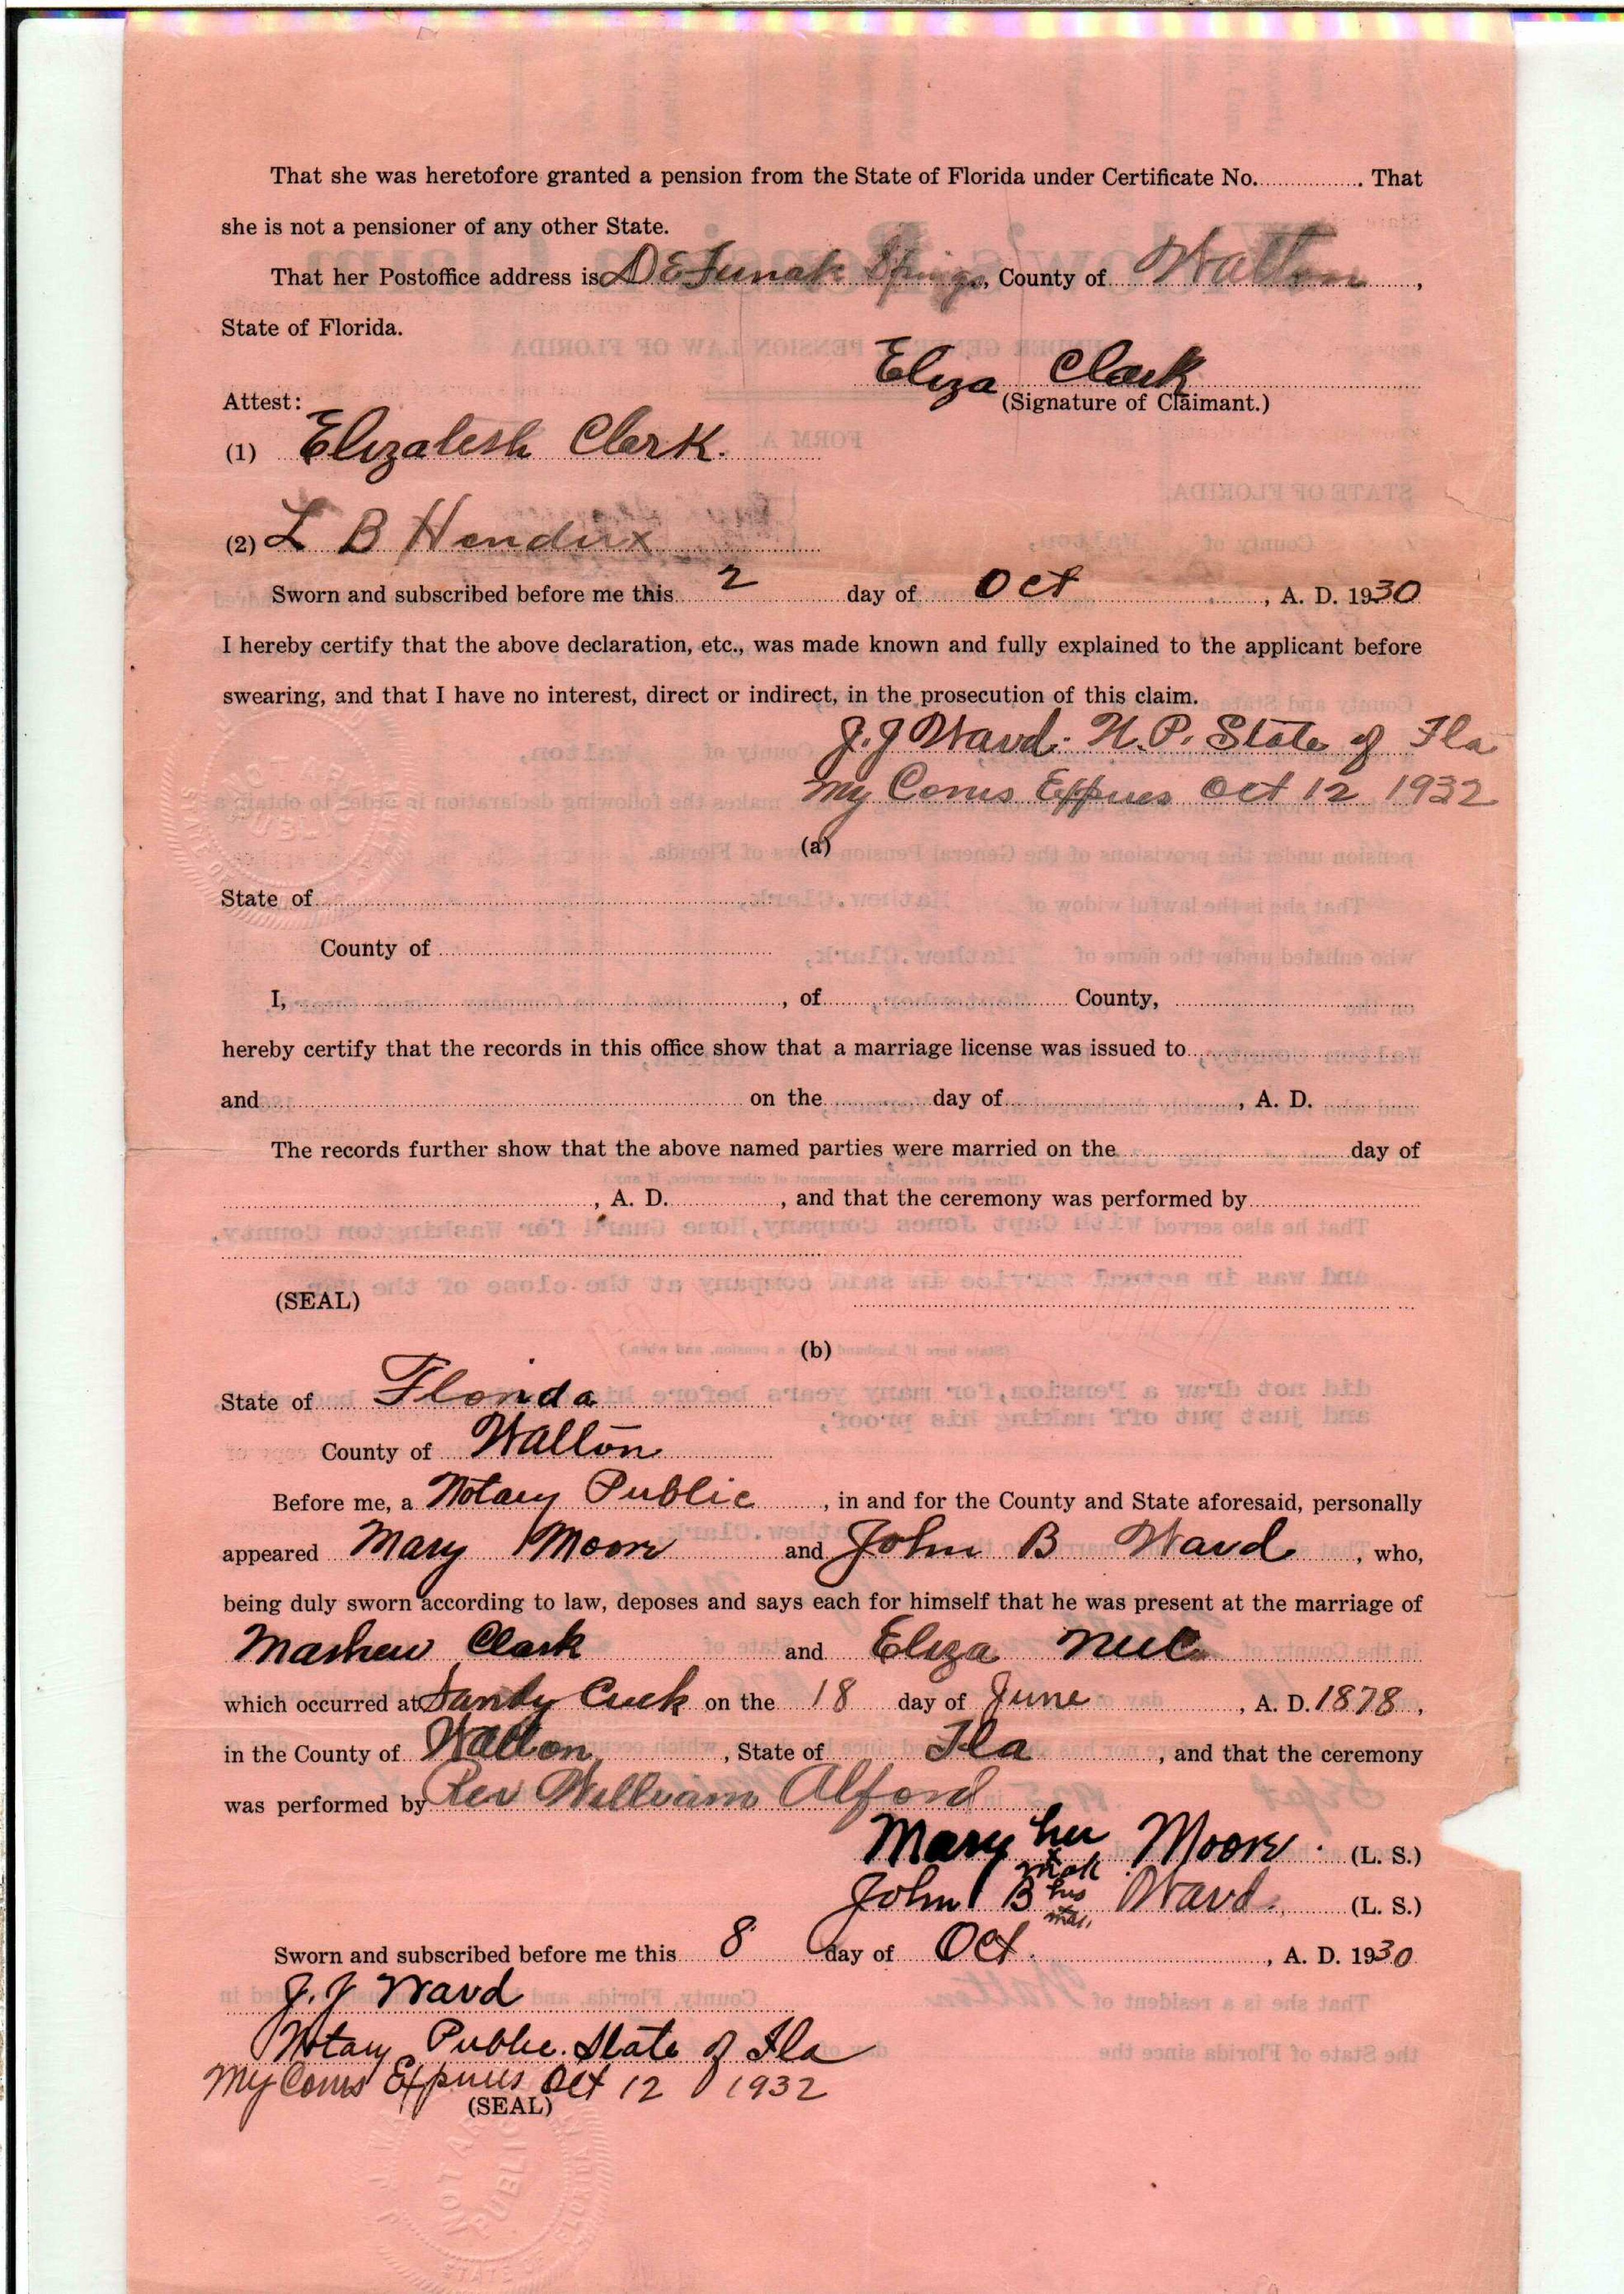 That she was heretofore granted a pension from the State of Florida under Certificate No. . That
she is not a pensioner of any other State.
That her Postoffice address is DeFunak Springs, County of Walton,
State of Florida.
Eliza Clark
Attest:
(Signature of Claimant.)
(1) Elizabesh Clark.
(2) L B Hendrix
Sworn and subscribed before me this 2 day of Oct, A. D. 1930
I hereby certify that the above declaration, etc., was made known and fully explained to the applicant before
swearing, and that I have no interest, direct or indirect, in the prosecution of this claim.
J. J Ward. N. P. State of Fla
My Coms Expires Oct 12 1932
(a)
State of
County of
I, , of County,
hereby certify that the records in this office show that a marriage license was issued to
and on the day of , A. D.
The records further show that the above named parties were married on the day of
, A. D. , and that the ceremony was performed by
(SEAL)
(b)
State of Florida
County of Walton
Before me, a Notary Public, in and for the County and State aforesaid, personally
appeared Mary Moore and John B Ward, who,
being duly sworn according to law, deposes and says each for himself that he was present at the marriage of
Mashew Clark and Eliza
which occurred at Sandy Creek on the 18 day of June, A. D. 1878,
in the County of Walton, State of Fla, and that the ceremony
was performed by Rev William Alford
Mary her x mark Moore. (L. S.)
John B his x mark Ward. (L. S.)
Sworn and subscribed before me this 8 day of Oct., A. D. 1930
J. J Ward
Notary Public. State of Fla
My Coms Expires Oct 12 1932
(SEAL)